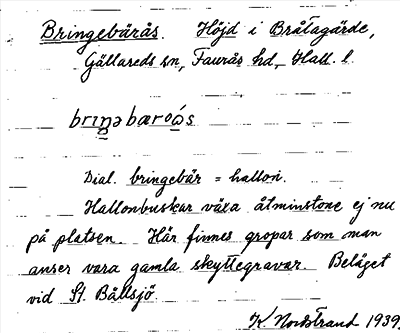 Bringebärås. Höjd i Bråtagärde,
Gällareds sn, Faurås hd, Hall. l.
briŋəbæroås
Dial. bringebär = hallon.
Hallonbuskar växa åtminstone ej nu
på platsen. Här finnes gropar som man
anser vara gamla skyttegravar. Beläget
vid St. Bållsjö.
K. Nordstrand 1939.